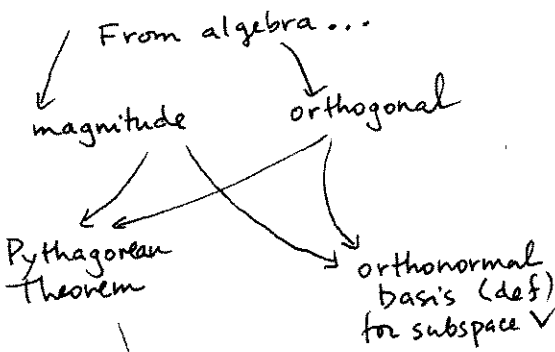 From algebra...
magnitude
orthogonal
Pythagorean
Theorem
orthonormal
basis (def)
for subspace V